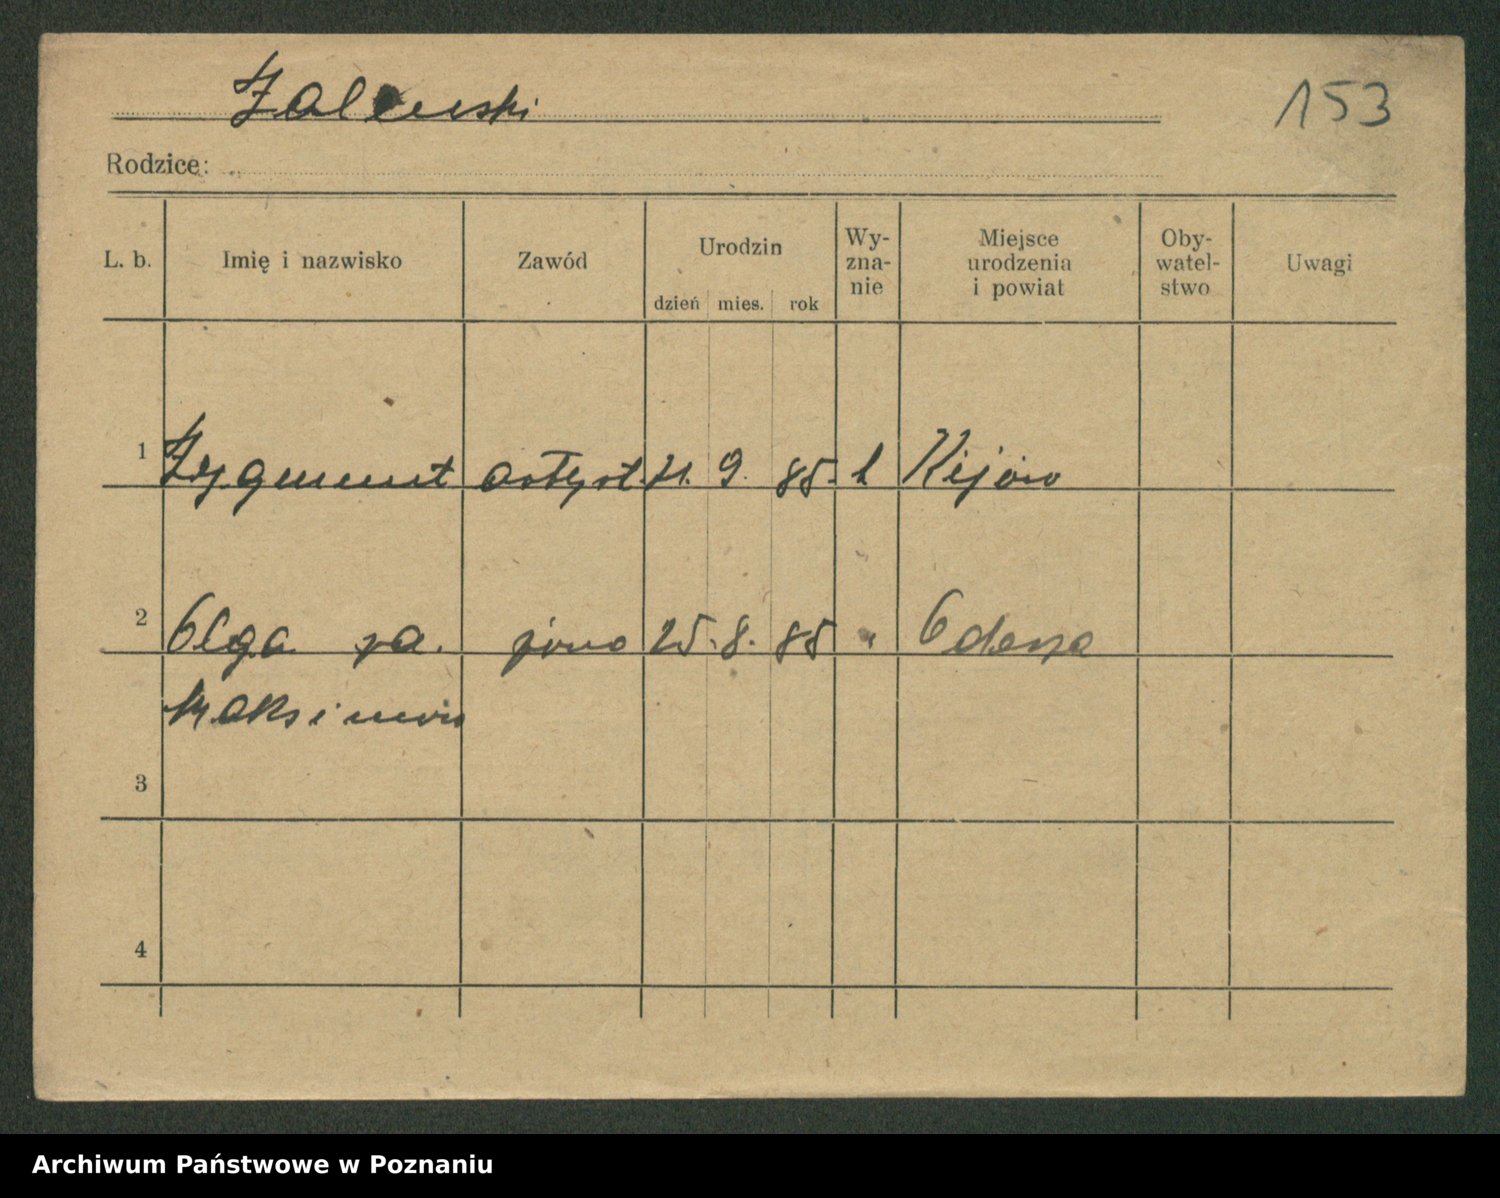 Zalewski
153
Rodzice:
L. b. Imię i nazwisko Zawód Urodzin dzień mies. rok Wy-zna-nie Miejsce urodzenia i powiat Oby-watel-stwo Uwagi
1 Zygmunt artyst. 9. 85. Kijów
2 Olga za. żona 25. 8. 85 " Odessa
Maksimów
3
4
Archiwum Państwowe w Poznaniu